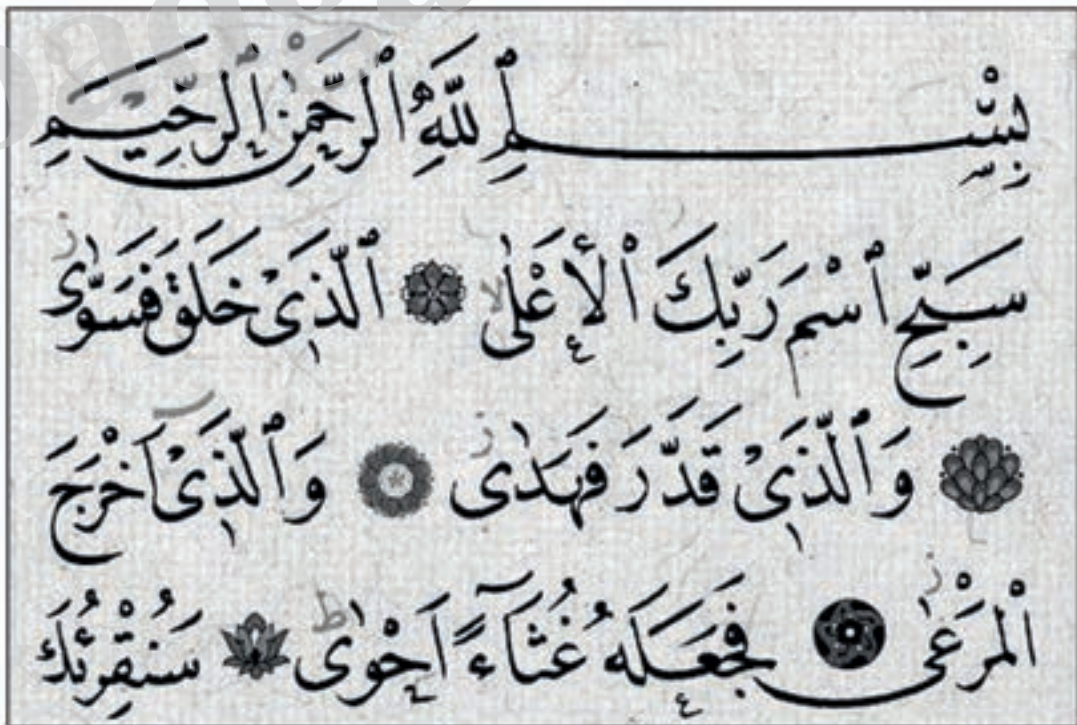 بِسْمِ ٱللَّهِ ٱلرَّحْمٰنِ ٱلرَّحِيمِ
سَبِّحِ ٱسْمَ رَبِّكَ ٱلْأَعْلٰى ٱلَّذِىْ خَلَقَ فَسَوّٰى
وَٱلَّذِىْ قَدَّرَ فَهَدٰى وَٱلَّذِىْٓ اَخْرَجَ
ٱلْمَرْعٰى فَجَعَلَهُ غُثَآءً اَحْوٰى سَنُقْرِئُكَ